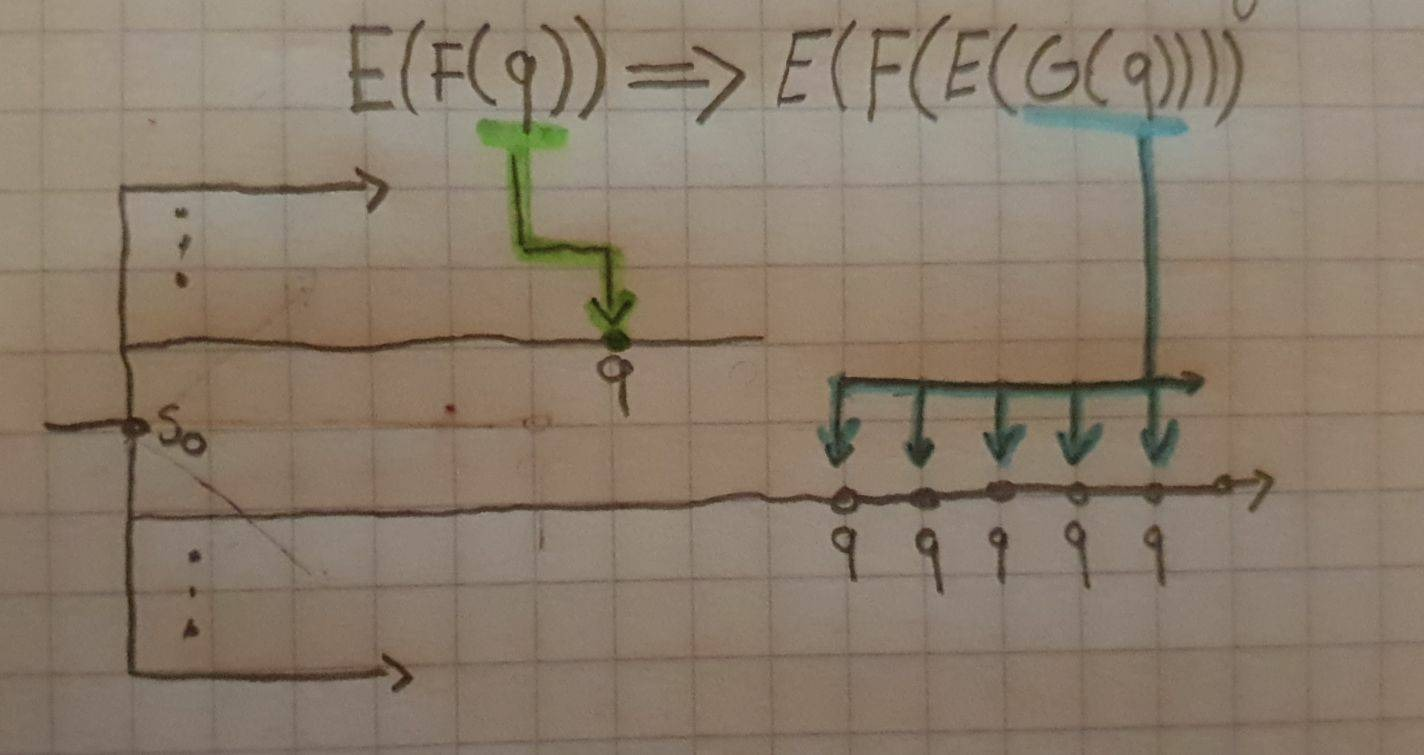 E(F(q)) => E(F(E(G(q))))
q
S₀
q q q q q